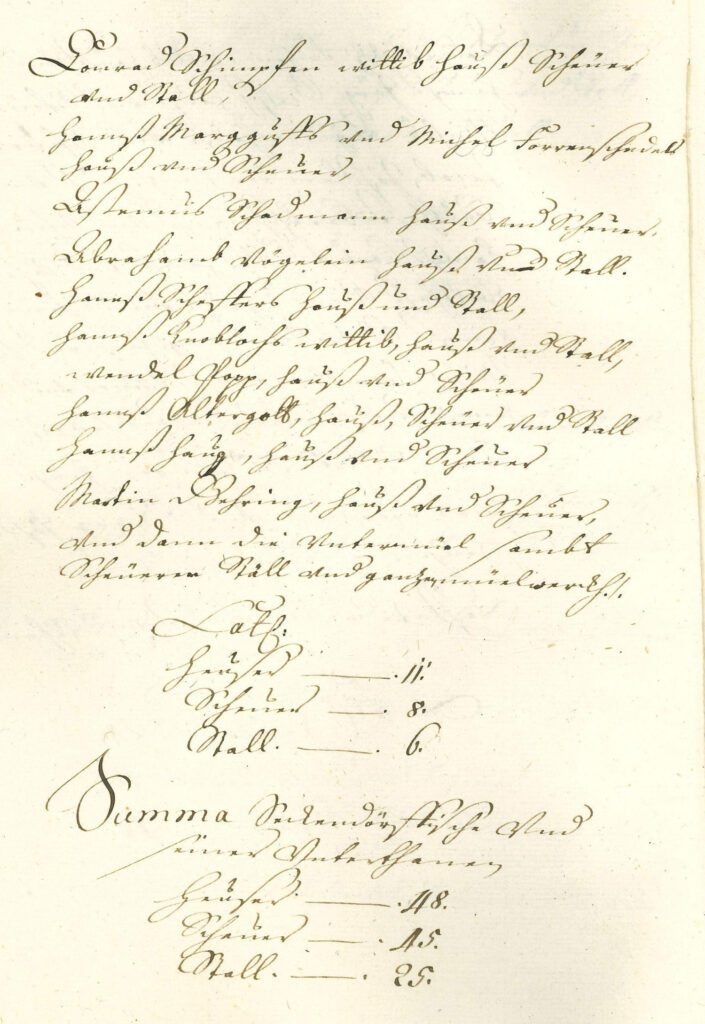 Conrad Schimpfen wittib hauß Scheuer
vnd Stall,
hannß Marggraffs vnd Michel Forrenschedels
hauß vnd Scheuer,
Astemus Schadmann hauß vnd Scheuer.
Abrahamb Vögelein hauß vnd Stall.
hannß Scheffers hauß und Stall,
hannß Knoblochs wittib, hauß vnd Stall,
wendel Popp, hauß vnd Scheuer
hannß Altergott, hauß, Scheuer vnd Stall
hannß haug, hauß vnd Scheuer
Martin Gehring, hauß vnd Scheuer,
vnd dann die Vntermüel sambt
Scheueren Ställ vnd ganzen müelwerckh.
Lat:
heuser — 11.
Scheuer — 8.
Stall. — 6.
Summa Seckendörffische vnd
seiner Vnterthanen
heuser — 48.
Scheuer — 45.
Stall. — 25.